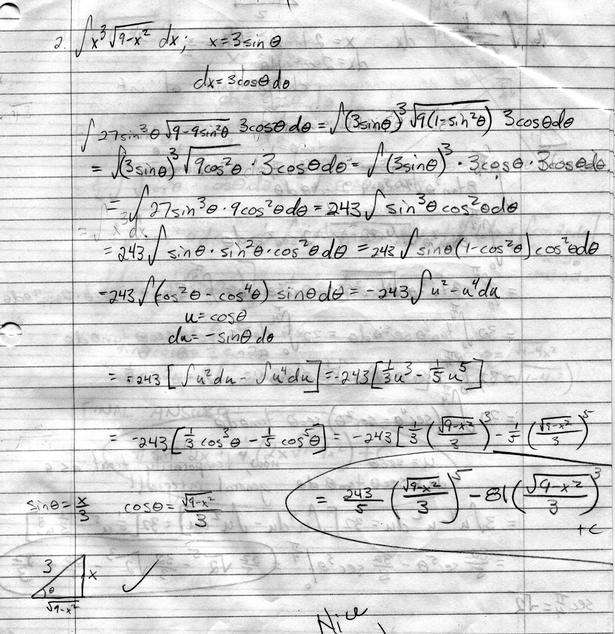 2. ∫x³√9-x² dx; x=3sinθ
dx=3cosθdθ
∫27sin³θ √9-9sin²θ 3cosθ dθ = ∫(3sinθ)³ √9(1-sin²θ) 3cosθdθ
= ∫(3sinθ)³ √9cos²θ · 3cosθdθ = ∫(3sinθ)³ · 3cosθ · 3cosθdθ
= ∫27sin³θ · 9cos²θdθ = 243∫sin³θcos²θdθ
= 243∫ sinθ · sin²θ · cos²θdθ = 243∫ sinθ(1-cos²θ)cos²θdθ
=243∫(cos²θ - cos⁴θ) sinθdθ = -243∫u²-u⁴du
u=cosθ
du=-sinθdθ
= -243[∫u²du - ∫u⁴du] = -243[1/3u³ - 1/5u⁵]
= -243[1/3 cos³θ - 1/5 cos⁵θ] = -243[1/3(√9-x²/3)³ - 1/5(√9-x²/3)⁵
sinθ=x/3 cosθ=√9-x²/3 = 243/5(√9-x²/3)⁵ - 81(√9-x²/3)³
+c
3 x
θ
√9-x²
Nice